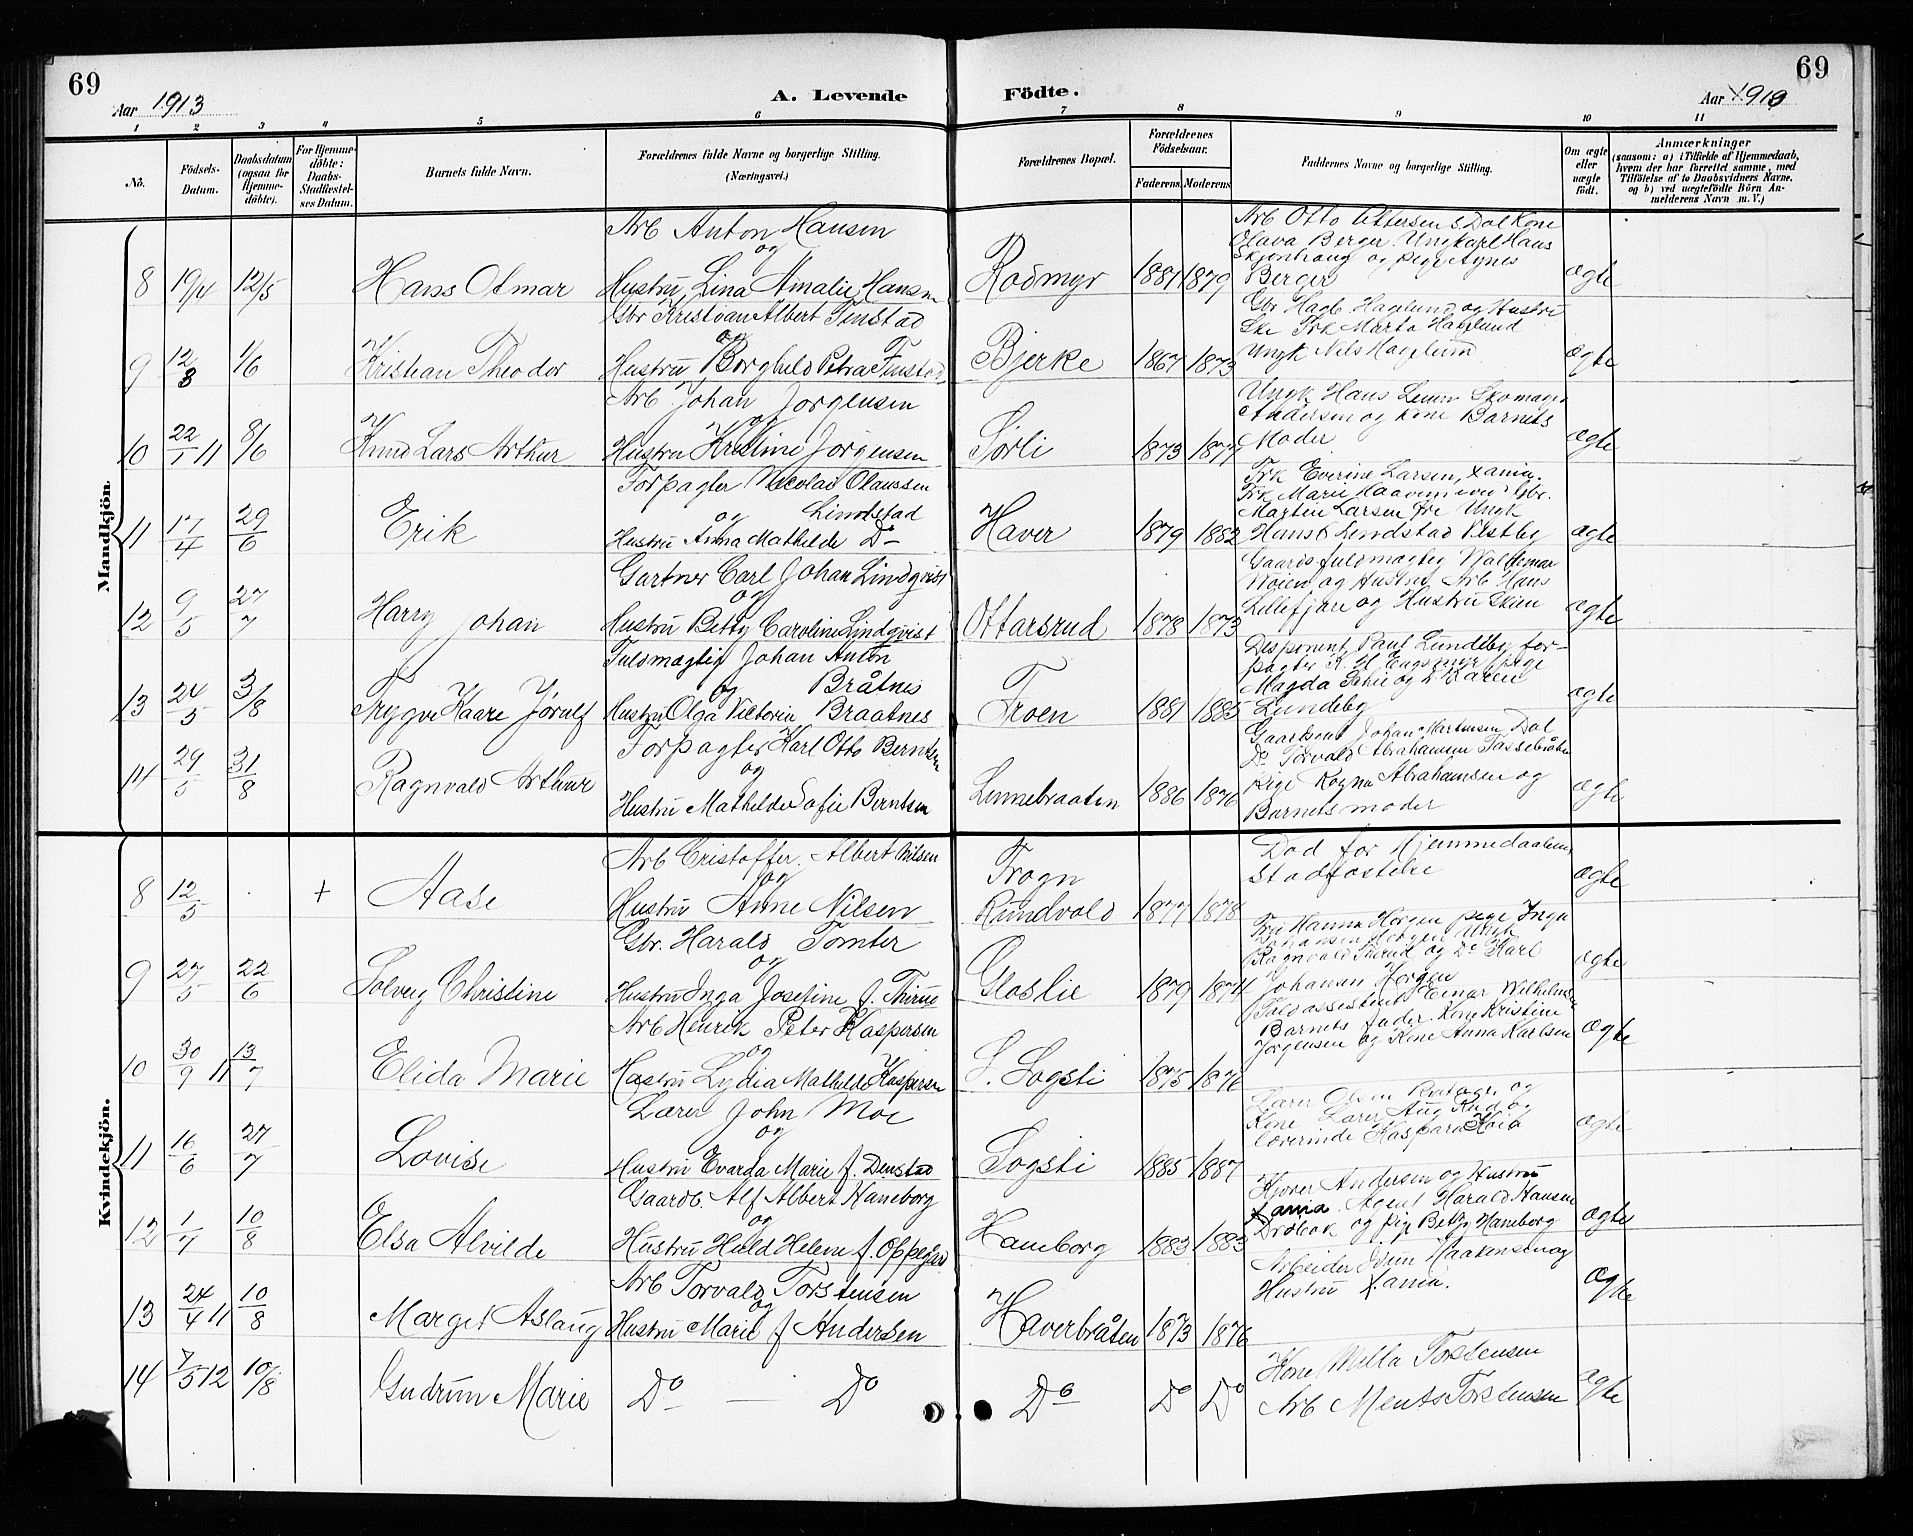 69
Aar 1913
A. Levende Födte.
69
Aar 1913
1 2 3 4 5 6 7 8 9 10 11
No.
Födsels-Datum.
Daabsdatum (ogsaa for Hjemme-döbte).
For Hjemme-döbte: Daabs-Stadfæstel-ses Datum.
Barnets fulde Navn.
Forældrenes fulde Navne og borgerlige Stilling. (Næringsvei.)
Forældrenes Bopæl.
Forældrenes Födselsaar.
Faderens. Moderens.
Faddernes Navne og borgerlige Stilling.
Om ægte eller uægte födt.
Anmærkninger
(saasom: a) i Tilfælde af Hjemmedaab, hvem der har forrettet samme, med Tilföielse af to Daabsvidners Navne, og b) ved uægtefödte Börn An-melderens Navn m. V.)
Mandkjön.
Arb Anton Hansen
og
8 19/4 12/5 Hans Otmar Hustru Lina Amalie Hansen Rødmyr 1881 1879 ægte
Arb Otto Ottersen S. Dal Kone
Olava Berger Ungkarl Hans
Skjønhaug og pige Agnes
Berger
Gbr Kristian Albert Finstad
og
9 12/3 1/6 Kristian Theodor Hustru Borghild Petra Finstad Bjerke 1867 1873 ægte
Gbr Hagb Hagelund og Hustru
Ske Frk Marta Hagelund
Ungk Nils Hagelund
Arb Johan Jorgensen
og
10 22/1 11 8/6 Knud Lars Arthur Hustru Kristine Jörgensen Sørli 1873 1877 ægte
Ungk Hans Skomager
Andersen og kone Barnets
Moder
Forpagter Nicolai Olaussen
og Lindstad
11 17/4 29/6 Erik Hustru Anna Mathilde Do Haver 1879 1882 ægte
Frk Everine Larsen, Xania.
Frk Marie Gbr.
Martin Larsen Ungk
Hans Lindstad Vestby
Gartner Carl Johan Lindqvist
og
12 9/5 27/7 Harry Johan Hustru Betty Caroline Lindqvist Ottarsrud 1878 1873 ægte
Gaardsfuldmægtig Waldemar
Moien og Hustru, Arb Hans
Lillefjære og Hustru Skien
Fuldmægtig Johan Anton
og Bråtnes
13 24/5 3/8 Trygve Kaare Jørulf Hustru Olga Victoria Braatnes Froen 1881 1885 ægte
Disponent Paul Lundeby, for-
pagter K. H. Engsmyr, pige
Magda og Do Karen
Lundeby
Forpagter Karl Otto Berntsen
og
14 29/5 31/8 Ragnvald Arthur Hustru Mathilde Sofie Berntsen Linnebraaten 1886 1876 ægte
Gaardbr Johan Martinsen Dal
Do Torvald Abrahamsen Tassebråten
Pige Ragna Abrahamsen og
Barnets moder
Kvindekjön.
Arb Cristoffer Albert Nilsen Frogn
og
8 12/5 + Aase Hustru Anne Nilsen Rundvold 1877 1878 ægte
Død før Hjemmedaabens
Stadfæstelse
Gbr. Harald Tomter
og
9 27/5 22/6 Solveig Christine Hustru Inga Josefine f. Thirud Gloslie 1879 1874 ægte
Fru Hanna Horgen pige Inga
Johansen Horgen Ungk
Ragnvald Thirud og Do Karl
Johansen Horgen
Arb Henrik Peter Kaspersen
og
10 30/9 11 13/7 Elida Marie Hustru Lydia Mathilde Kaspersen S. Sogsti 1875 1876 ægte
Toldassistent Einar Wilhelmsen
Barnets fader. Kone Kristine
Jørgensen og Kone Anna Karlsen
Lærer John Moe
og
11 16/6 27/7 Lovise Hustru Evarda Marie f. Denstad Sogsti 1885 1887 ægte
Lærer Olsen og
Kone Lærer Aug Rud og
lærerinde Kaspara
Gaardb. Alf Albert Haneborg
og
12 1/7 10/8 Elsa Alvilde Hustru Huld Helene f. Oppegård Haneborg 1883 1883 ægte
Kjører Andersen og Hustru
Xania. Agent Harald Hansen
Drøbak og pig Betzy Haneborg
Arb Torvald Torstensen
og
13 24/4 11 10/8 Marget Aslaug Hustru Marie f Andersen Haverbråten 1873 1876 ægte
Arbeider Haakensen og
Hustru Xania.
14 7/5 12 10/8 Gudrun Marie Do — Do Do Do Do ægte
Kone Milla Torstensen
Arb Ments Torstensen